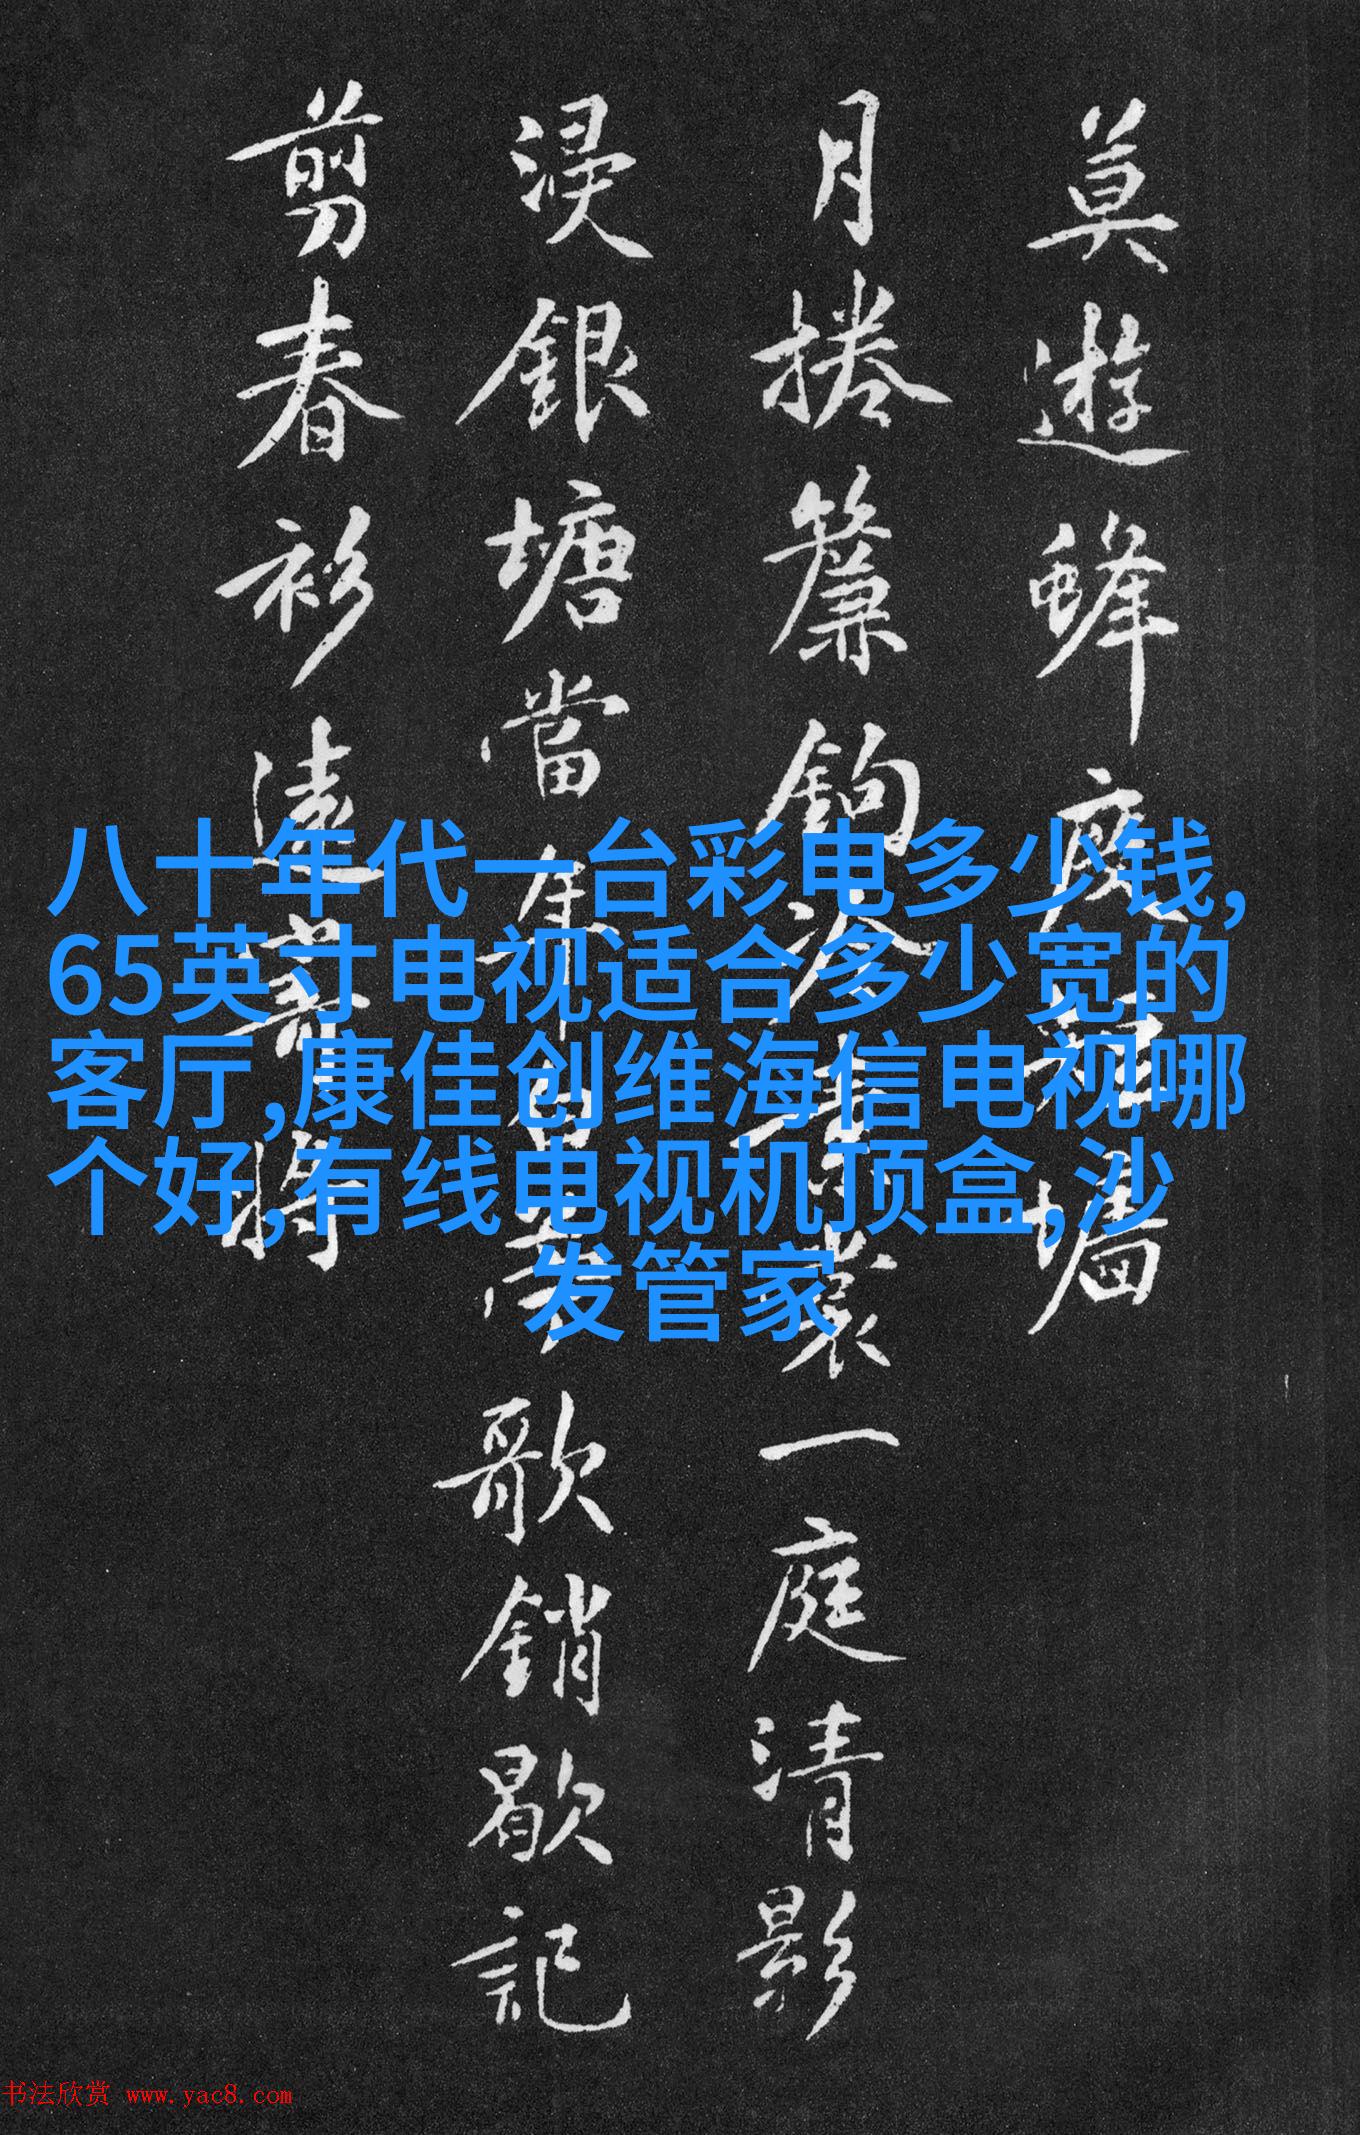 莫遊蜂度墙
月捲簾鉤冷裳一庭清影
浸銀塘當年白歌銷歇記
剪春衫遠寄將
八十年代一台彩电多少钱,
65英寸电视适合多少宽的
客厅,康佳创维海信电视哪
个好,有线电视机顶盒,沙
发管家
书法欣赏 www.yac8.com